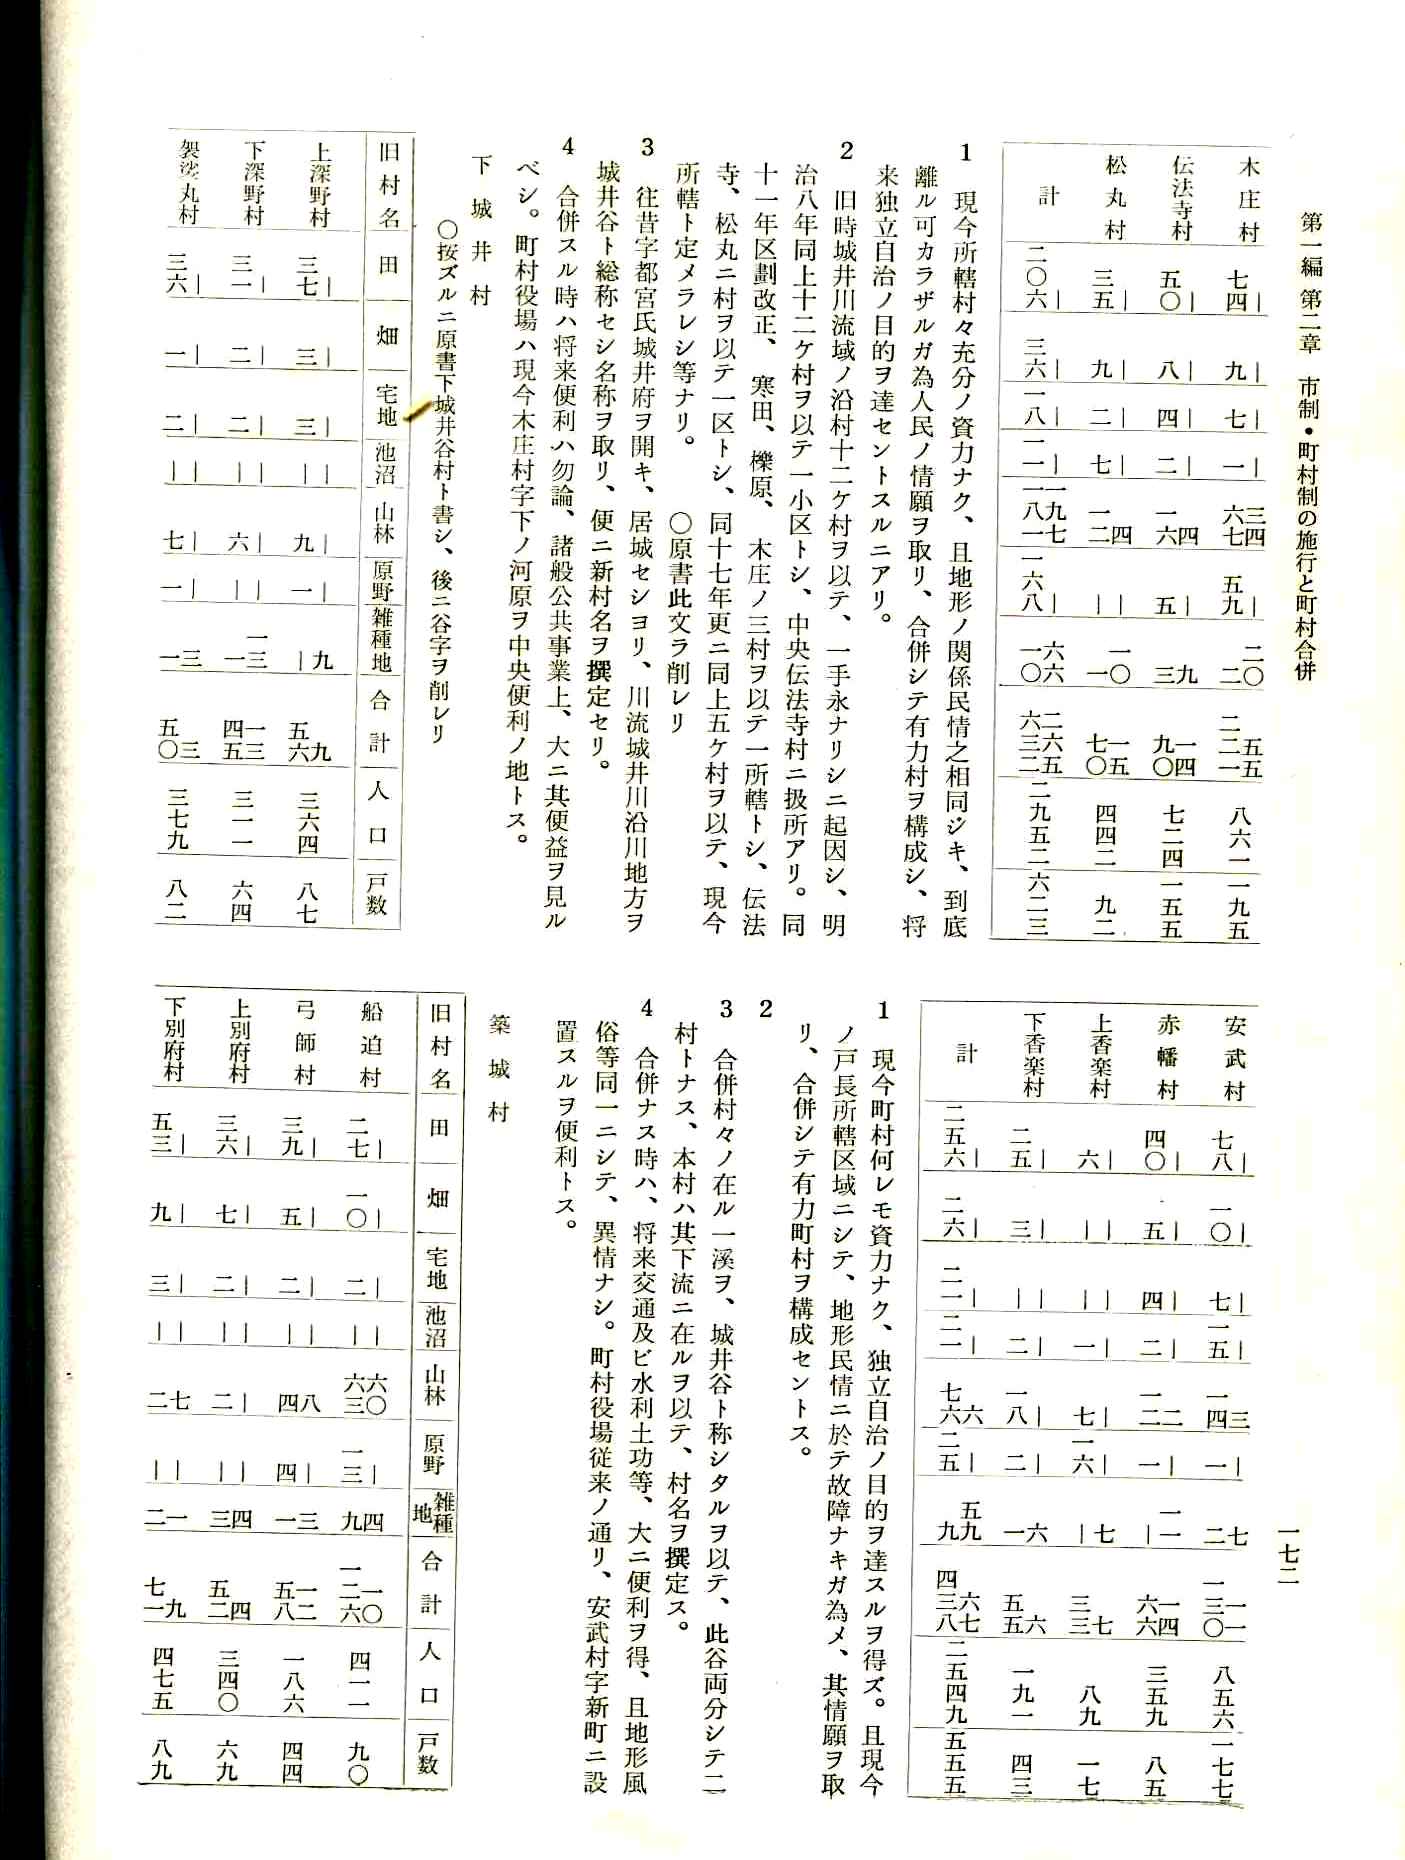 第一編 第二章 市制・町村制の施行と町村合併
一七二
木庄村 七四| 九| 七| 一| 六三七四 五九| 二〇二 二二五一五 八六一 一九五
伝法寺村 五〇| 八| 四| 二| 一四六 五| 九三 一九四〇 七二四 一五五
松丸村 三五| 九| 二| 七| 一四二 || 一〇一 一七五〇 四四二 九二
計 二〇六| 三六| 一八| 一一|
1 現今所轄村々充分ノ資力ナク、且地形ノ関係民情之相同ジキ、到底
離ル可カラザルガ為人民ノ情願ヲ取リ、合併シテ有力村ヲ構成シ、将
来独立自治ノ目的ヲ達セントスルニアリ。
2 旧時城井川流域ノ沿村十二ケ村ヲ以テ、一手永ナリシニ起因シ、明
治八年同上十二ケ村ヲ以テ一小区トシ、中央伝法寺村ニ扱所アリ。同
十一年区劃改正、寒田、櫟原、木庄ノ三村ヲ以テ一所轄トシ、伝法
寺、松丸ニ村ヲ以テ一区トシ、同十七年更ニ同上五ケ村ヲ以テ、現今
所轄ト定メラレシ等ナリ。 〇原書此文ラ削レリ
3 往昔字都宮氏城井府ヲ開キ、居城セシヨリ、川流城井川沿川地方ヲ
城井谷ト総称セシ名称ヲ取リ、便ニ新村名ヲ撰定セリ。
4 合併スル時ハ将来便利ハ勿論、諸般公共事業上、大ニ其便益ヲ見ル
ベシ。町村役場ハ現今木庄村字下ノ河原ヲ中央便利ノ地トス。
下城井村
〇按ズルニ原書下城井谷村ト書シ、後ニ谷字ヲ削レリ
旧村名 田 畑 宅地 池沼 山林 原野 雑種地 合計 人口 戸数
上深野村 三七| 三| 三| || 九| 一| |九 五六九 三六四 八七
下深野村 三一| 二| 二| || 六| || 一一三 四一五三 三一一 六四
袈裟丸村 三六| 一| 二| || 七| 一| 一三 五〇三 三七九 八二
安武村 七八| 一〇| 七| 一五| 一四三 一| 二七 一三一〇一 八五六 一七七
赤幡村 四〇| 五| 四| 二| 一二二 一| 一一| 六一六四 三五九 八五
上香楽村 六| || || 一| 七| 一六| |七 三三七 八九 一七
下香楽村 二五| 三| || 二| 一八| 二| 一六 五五六 一九一 四三
計 二五六| 二六| 二一| 七六六 二五| 五九九 四三六八七 二五四九 五五五
1 現今町村何レモ資力ナク、独立自治ノ目的ヲ達スルヲ得ズ。且現今
ノ戸長所轄区域ニシテ、地形民情ニ於テ故障ナキガ為メ、其情願ヲ取
リ、合併シテ有力町村ヲ構成セントス。
2
3 合併村々ノ在ル一溪ヲ、城井谷ト称シタルヲ以テ、此谷両分シテ二
村トナス、本村ハ其下流ニ在ルヲ以テ、村名ヲ撰定ス。
4 合併ナス時ハ、将来交通及ビ水利土功等、大ニ便利ヲ得、且地形風
俗等同一ニシテ、異情ナシ。町村役場従来ノ通リ、安武村字新町ニ設
置スルヲ便利トス。
築城村
旧村名 田 畑 宅地 池沼 山林 原野 雑種地 合計 人口 戸数
船迫村 二七| 一〇| 二| || 六六三〇 一三| 九四 一二一六〇 四一一 九〇
弓師村 三九| 五| 二| || 四八 四| 一三 五一八二 一八六 四四
上別府村 三六| 七| 二| || 二| || 三四 五二四 三四〇 六九
下別府村 五三| 九| 三| || 二七 || 二一 七一九 四七五 八九